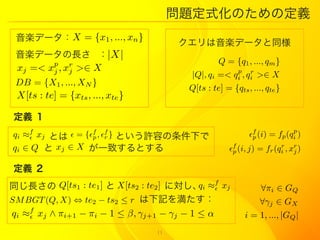 問題定式化のための定義
音楽データ：X = {x1, ..., xn}
音楽データの長さ ：|X|
xj =< x^p_j, x^r_j >∈ X
DB = {X1, ..., XN}
X[ts : te] = {xts, ..., xte}
クエリは音楽データと同様
Q = {q1, ..., qm}
|Q|, qi =< q^p_i, q^r_i >∈ X
Q[ts : te] = {qts, ..., qte}
定義 1
qi ≈^f_ϵ xj とは ϵ = {ϵ^f_p, ϵ^f_r} という許容の条件下で
qi ∈ Q と xj ∈ X が一致するとする
ϵ^f_p(i) = fp(q^p_i)
ϵ^f_p(i, j) = fr(q^r_i, x^r_j)
定義 2
同じ長さの Q[ts1 : te1] と X[ts2 : te2] に対し、qi ≈^f_ϵ xj
SMBGT(Q, X) ⇔ te2 − ts2 ≤ r は下記を満たす：
qi ≈^f_ϵ xj ∧ πi+1 − πi − 1 ≤ β, γj+1 − γj − 1 ≤ α
∀πi ∈ GQ
∀γj ∈ GX
i = 1, ..., |GQ|
11